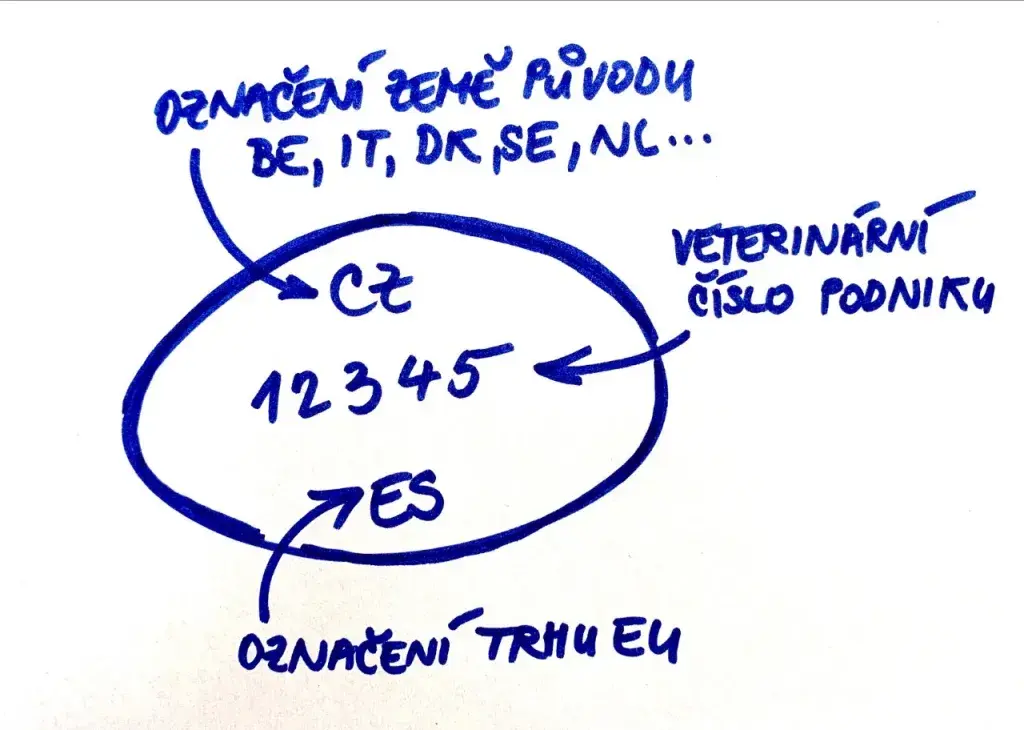 OZNAČENÍ ZEMĚ PŮVODU
BE, IT, DK, SE, NL...
CZ
VETERINÁRNÍ
ČÍSLO PODNIKU
12345
ES
OZNAČENÍ TRHU EU